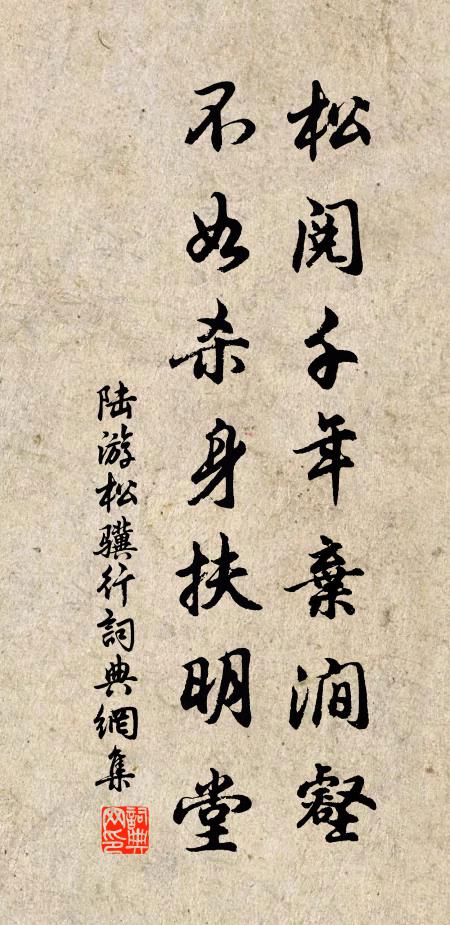 松阅千年棄澗壑
不如杀身扶明堂
陆游松骥行詞典網集
詞典网印